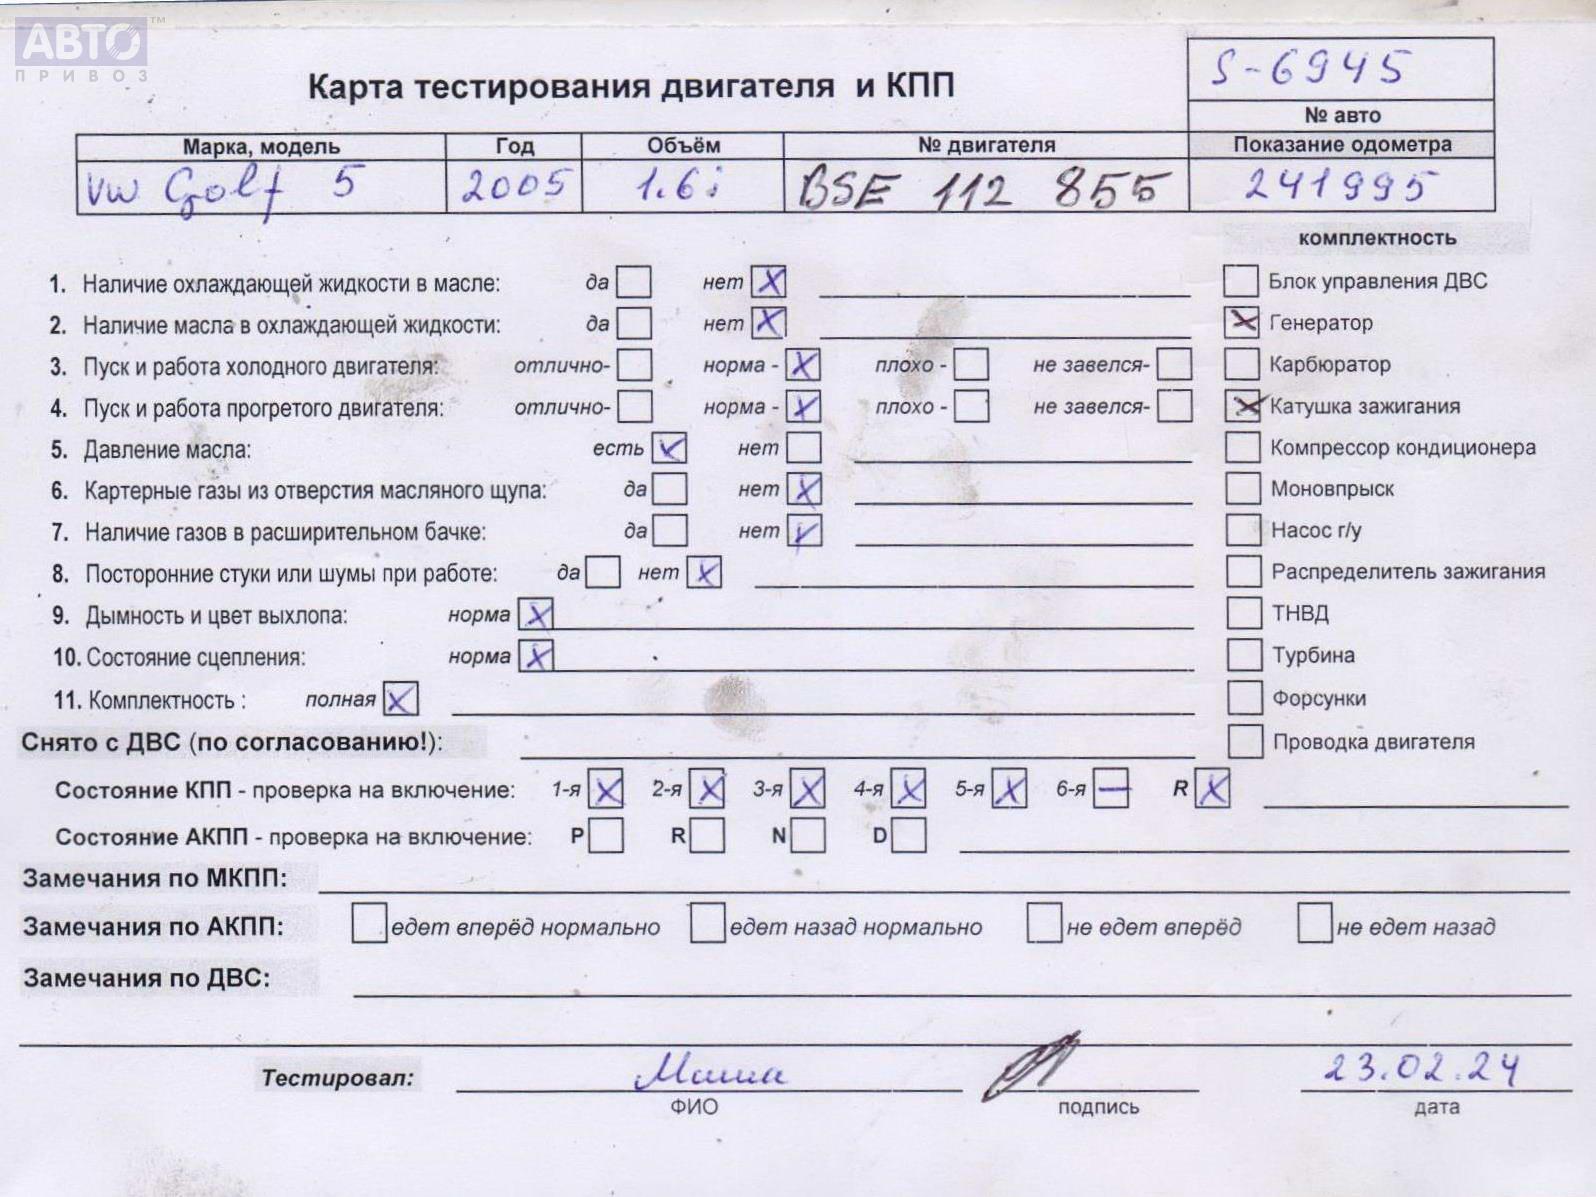 АВТО™
ПРИВОЗ
S-6945
Карта тестирования двигателя и КПП
№ авто
Марка, модель Год Объём № двигателя Показание одометра
VW Golf 5 2005 1.6i BSE 112 855 241995
комплектность
1. Наличие охлаждающей жидкости в масле: да нет X Блок управления ДВС
2. Наличие масла в охлаждающей жидкости: да нет X X Генератор
3. Пуск и работа холодного двигателя: отлично- норма - X плохо - не завелся- Карбюратор
4. Пуск и работа прогретого двигателя: отлично- норма - X плохо - не завелся- X Катушка зажигания
5. Давление масла: есть X нет Компрессор кондиционера
6. Картерные газы из отверстия масляного щупа: да нет X Моновпрыск
7. Наличие газов в расширительном бачке: да нет X Насос г/у
8. Посторонние стуки или шумы при работе: да нет X Распределитель зажигания
9. Дымность и цвет выхлопа: норма X ТНВД
10. Состояние сцепления: норма X Турбина
11. Комплектность : полная X Форсунки
Снято с ДВС (по согласованию!): Проводка двигателя
Состояние КПП - проверка на включение: 1-я X 2-я X 3-я X 4-я X 5-я X 6-я — R X
Состояние АКПП - проверка на включение: P R N D
Замечания по МКПП:
Замечания по АКПП: едет вперёд нормально едет назад нормально не едет вперёд не едет назад
Замечания по ДВС:
Тестировал: Миша 23.02.24
ФИО подпись дата